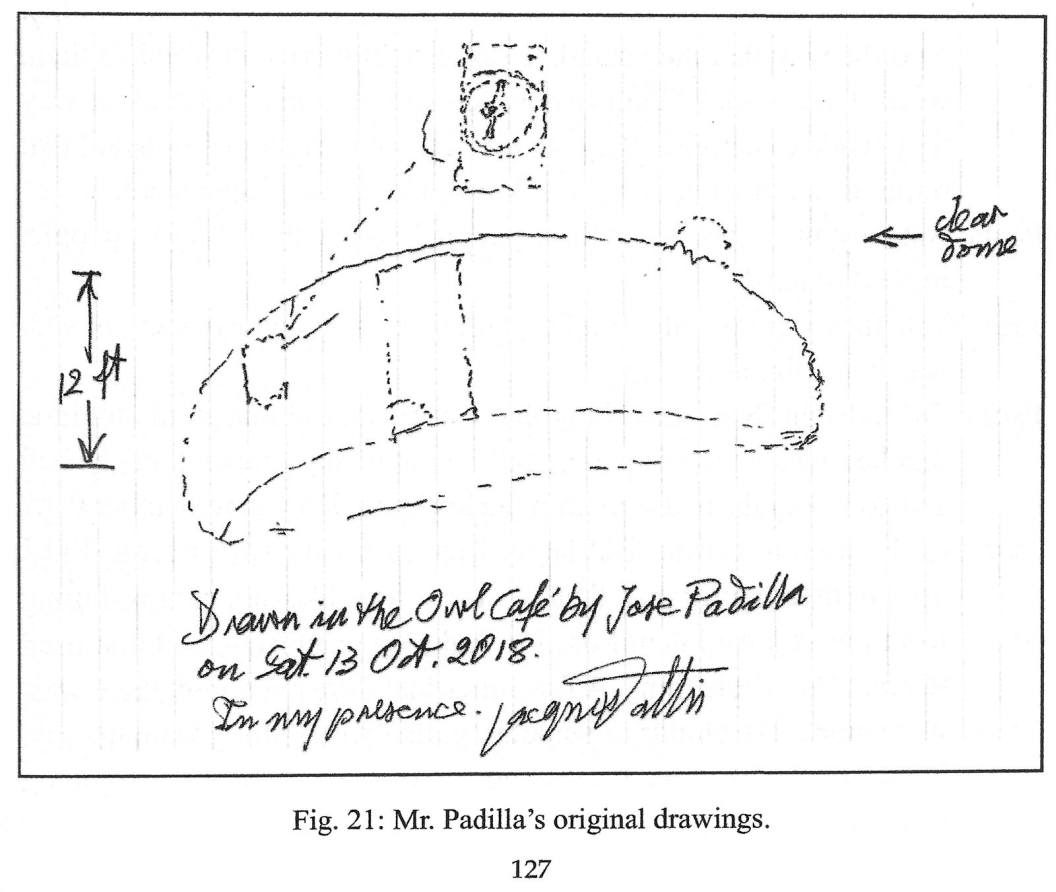 clear
dome
12 ft
Drawn in the Owl Café by Jose Padilla
on Sat. 13 Oct. 2018.
In my presence. Jacques Vallée
Fig. 21: Mr. Padilla's original drawings.
127